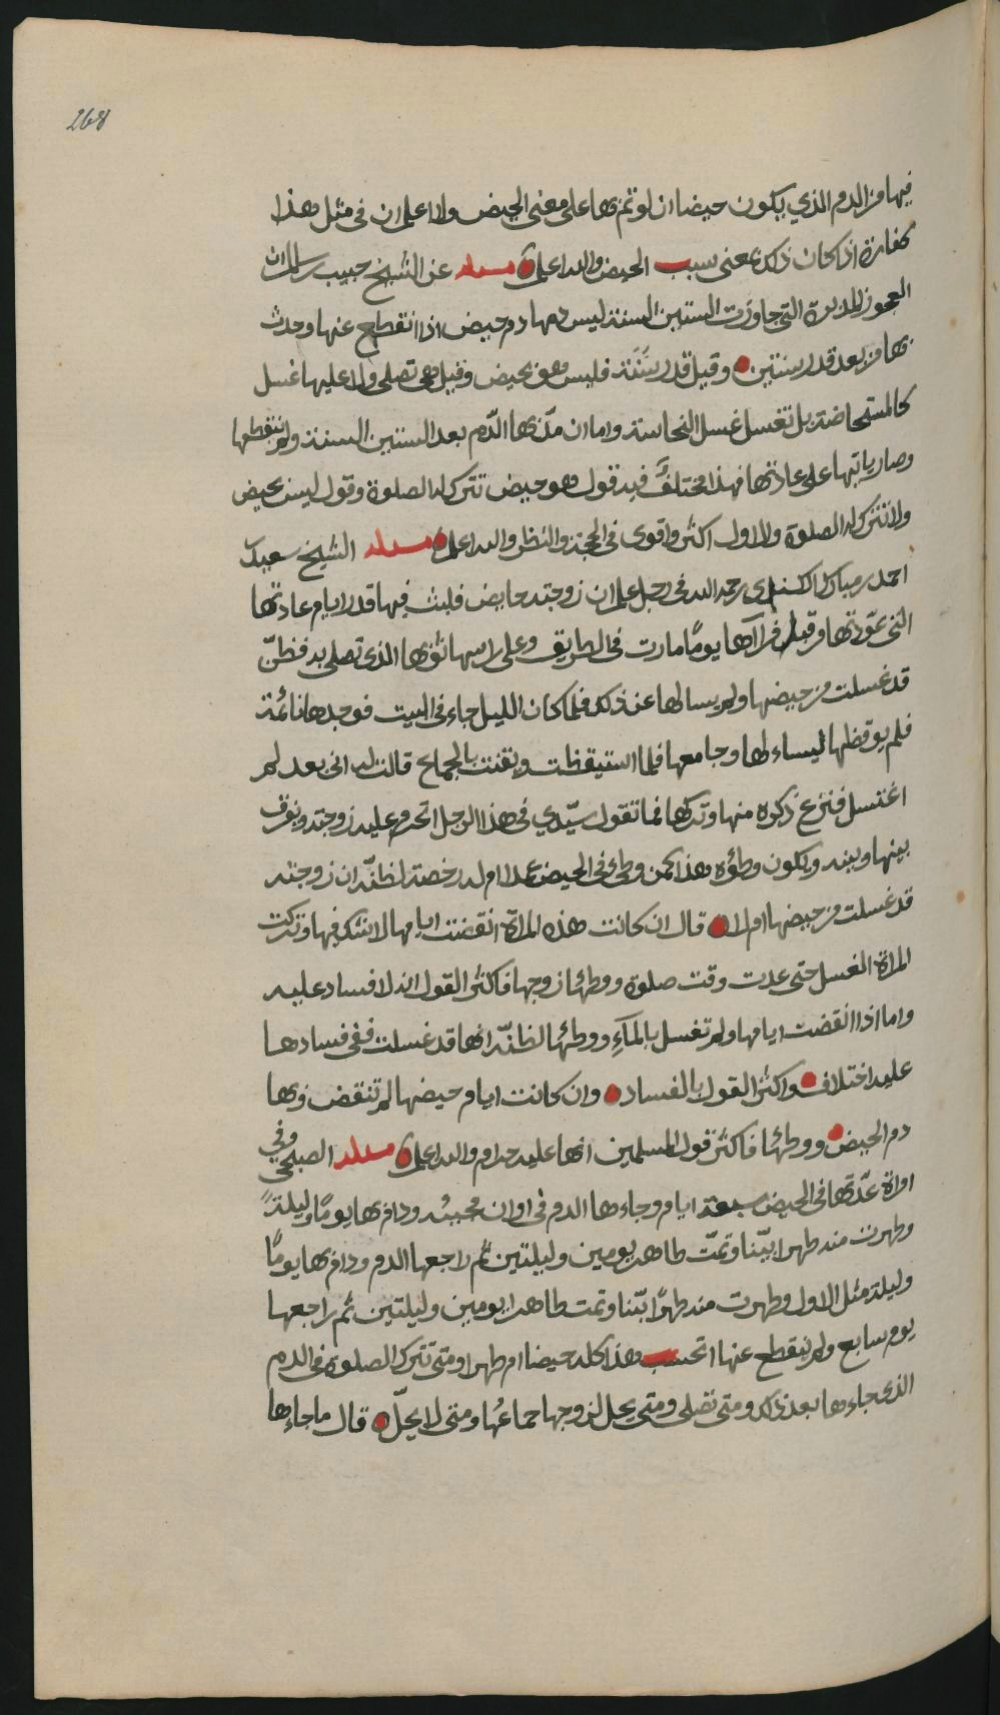 268
فيها من الدم الذي يكون حيضا ان لو تم بها على معنى الحيض ولا اعلم ان فى مثل هذا
كفارة اذا كان ذلك بمعنى سبب الحيض والله اعلم مسئلة عن الشيخ حبيب بن سالم ان
العجوز المدبرة التى جاوزت الستين السنة ليس دمها دم حيض اذا انقطع عنها وحدث
بها من بعد قدر سنتين وقيل قدر سَنَة فليس هو بحيض وقيل هى تصلى ولا عليها غسل
كالمستحاضة بل تغسل غسل النجاسة واما ان مدّ بها الدّم بعد الستين السنة ولم ينقطع عنها
وصار ياتيها على عادتها فهذا مختلفٌ فيه قول هو حيض تترك له الصلوة وقول ليس بحيض
ولا تترك له الصلوة والاول اكثر واقوى فى الحجة والنظر والله اعلم مسئلة الشيخ سعيد بن
احمد بن مبارك الكندى رحمه الله فى رجل علم ان زوجته حايض فلبث فيها قدر ايام عادتها
التى تعوّدتها من قبل فرآها يومًا مارت فى الطريق وعلى راسها ثوبها الذى تصلى به فظنّ
قد غسلت من حيضها ولم يسالها عن ذلك فلما كان الليل جاء فى البيت فوجدها نائمة
فلم يوقظها ليساءلها وجامعها فلما استيقظت ويقنت بالجماع قالت له انى بعد لم
اغتسل فنزع ذكره منها وتركها فما تقول سيّدي فى هذا الرجل اتحرم عليه زوجته ويفرق
بينها وبينه ويكون وطؤه هذا كمن وطئ فى الحيض عمدا ام له رخصة لظنّه ان زوجته
قد غسلت من حيضها ام لا قال ان كانت هذه المراة انقضت ايامها لا شك فيها وتركت
المراة الغسل حتى عدت وقت صلوة ووطئها زوجها فاكثر القول انه لا فساد عليه
واما اذا انقضت ايامها ولم تغسل بالمآءِ ووطئها لظنّه انها قد غسلت ففى فسادها
عليه اختلاف واكثر القول بالفساد وان كانت ايام حيضها لم تنقض وبها
دم الحيض ووطئها فاكثر قول المسلمين انها عليه حرام والله اعلم مسئلة الصبحى وفي
امراة عدّتها فى الحيض سبعة ايام وجاءها الدم فى اوان مجيئه ودام بها يومًا وليلةً
وطهرت منه طهرا بيّنا وتمّت طاهر يومين وليلتين ثم راجعها الدم ودام بها يومًا
وليلة مثل الاول وطهرت منه طهرًا بيّنا وتمت طاهرا يومين وليلتين ثم راجعها
يوم سابع ولم ينقطع عنها اتحسب هذا كله حيضا ام طهرا ومتى تترك الصلوة فى الدم
الذى جاءها بعد ذلك ومتى تصلى ومتى يحل لزوجها جماعُها ومتى لا يحلّ قال ما جاءها